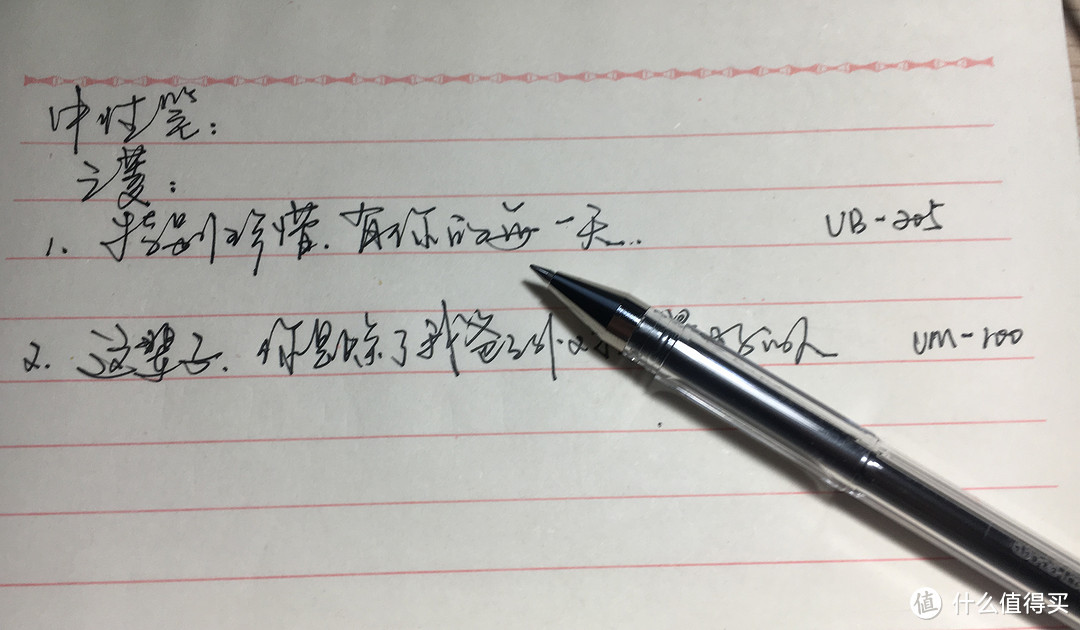 中性笔：
三菱：
1. 特别珍惜.有你的每一天... UB-205
2. 这辈子.你是除了我爸之外.对我最好的人 UM-100
值 什么值得买